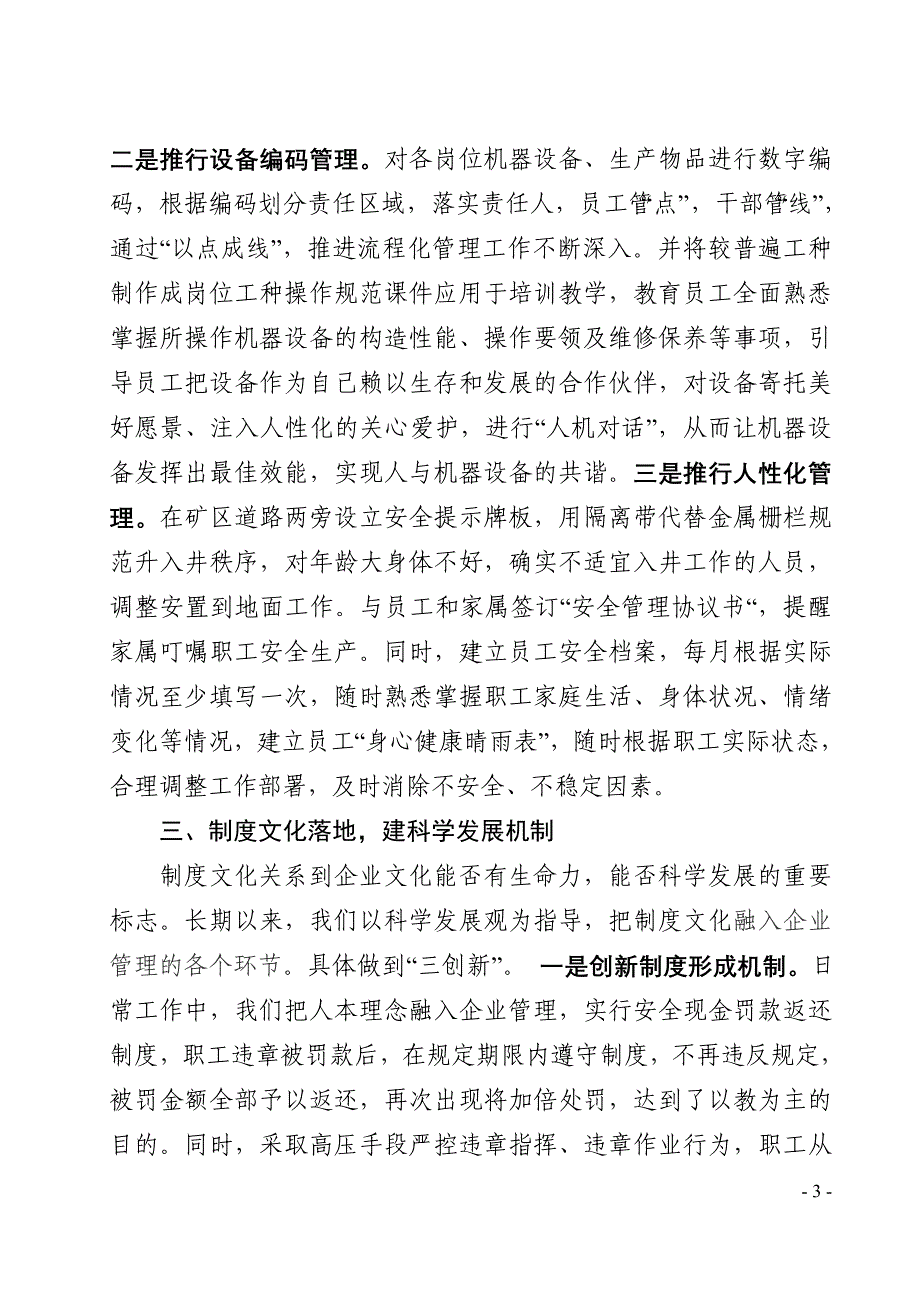 二是推行设备编码管理。对各岗位机器设备、生产物品进行数字编
码，根据编码划分责任区域，落实责任人，员工管“点”，干部管“线”，
通过“以点成线”，推进流程化管理工作不断深入。并将较普遍工种
制作成岗位工种操作规范课件应用于培训教学，教育员工全面熟悉
掌握所操作机器设备的构造性能、操作要领及维修保养等事项，引
导员工把设备作为自己赖以生存和发展的合作伙伴，对设备寄托美
好愿景、注入人性化的关心爱护，进行“人机对话”，从而让机器设
备发挥出最佳效能，实现人与机器设备的共谐。三是推行人性化管
理。在矿区道路两旁设立安全提示牌板，用隔离带代替金属栅栏规
范升入井秩序，对年龄大身体不好，确实不适宜入井工作的人员，
调整安置到地面工作。与员工和家属签订“安全管理协议书“，提醒
家属叮嘱职工安全生产。同时，建立员工安全档案，每月根据实际
情况至少填写一次，随时熟悉掌握职工家庭生活、身体状况、情绪
变化等情况，建立员工“身心健康晴雨表”，随时根据职工实际状态，
合理调整工作部署，及时消除不安全、不稳定因素。
三、制度文化落地，建科学发展机制
制度文化关系到企业文化能否有生命力，能否科学发展的重要
标志。长期以来，我们以科学发展观为指导，把制度文化融入企业
管理的各个环节。具体做到“三创新”。 一是创新制度形成机制。日
常工作中，我们把人本理念融入企业管理，实行安全现金罚款返还
制度，职工违章被罚款后，在规定期限内遵守制度，不再违反规定，
被罚金额全部予以返还，再次出现将加倍处罚，达到了以教为主的
目的。同时，采取高压手段严控违章指挥、违章作业行为，职工从
- 3 -